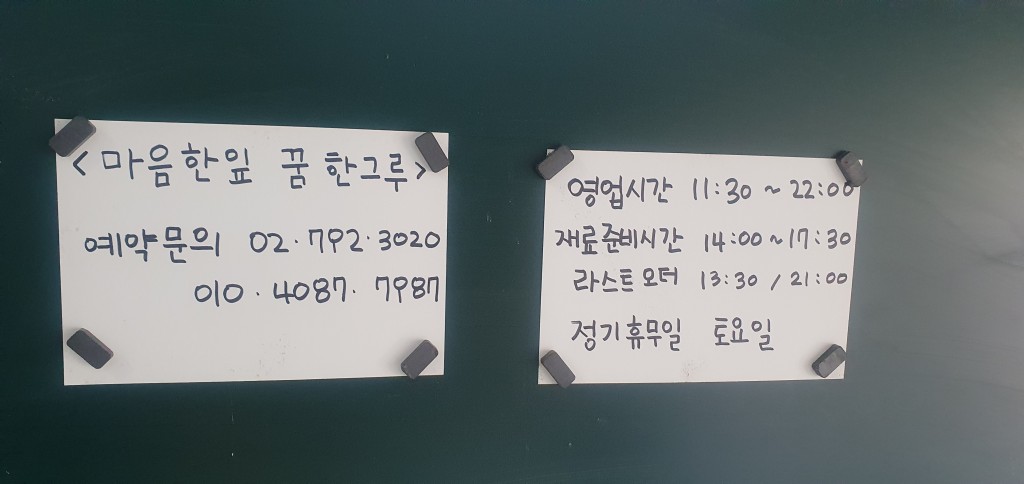 <마음한잎 꿈 한그루>
예약문의 02·792·3020
010·4087·7987
영업시간 11:30 ~ 22:00
재료준비시간 14:00~17:30
라스트오터 13:30 / 21:00
정기휴무일 토요일